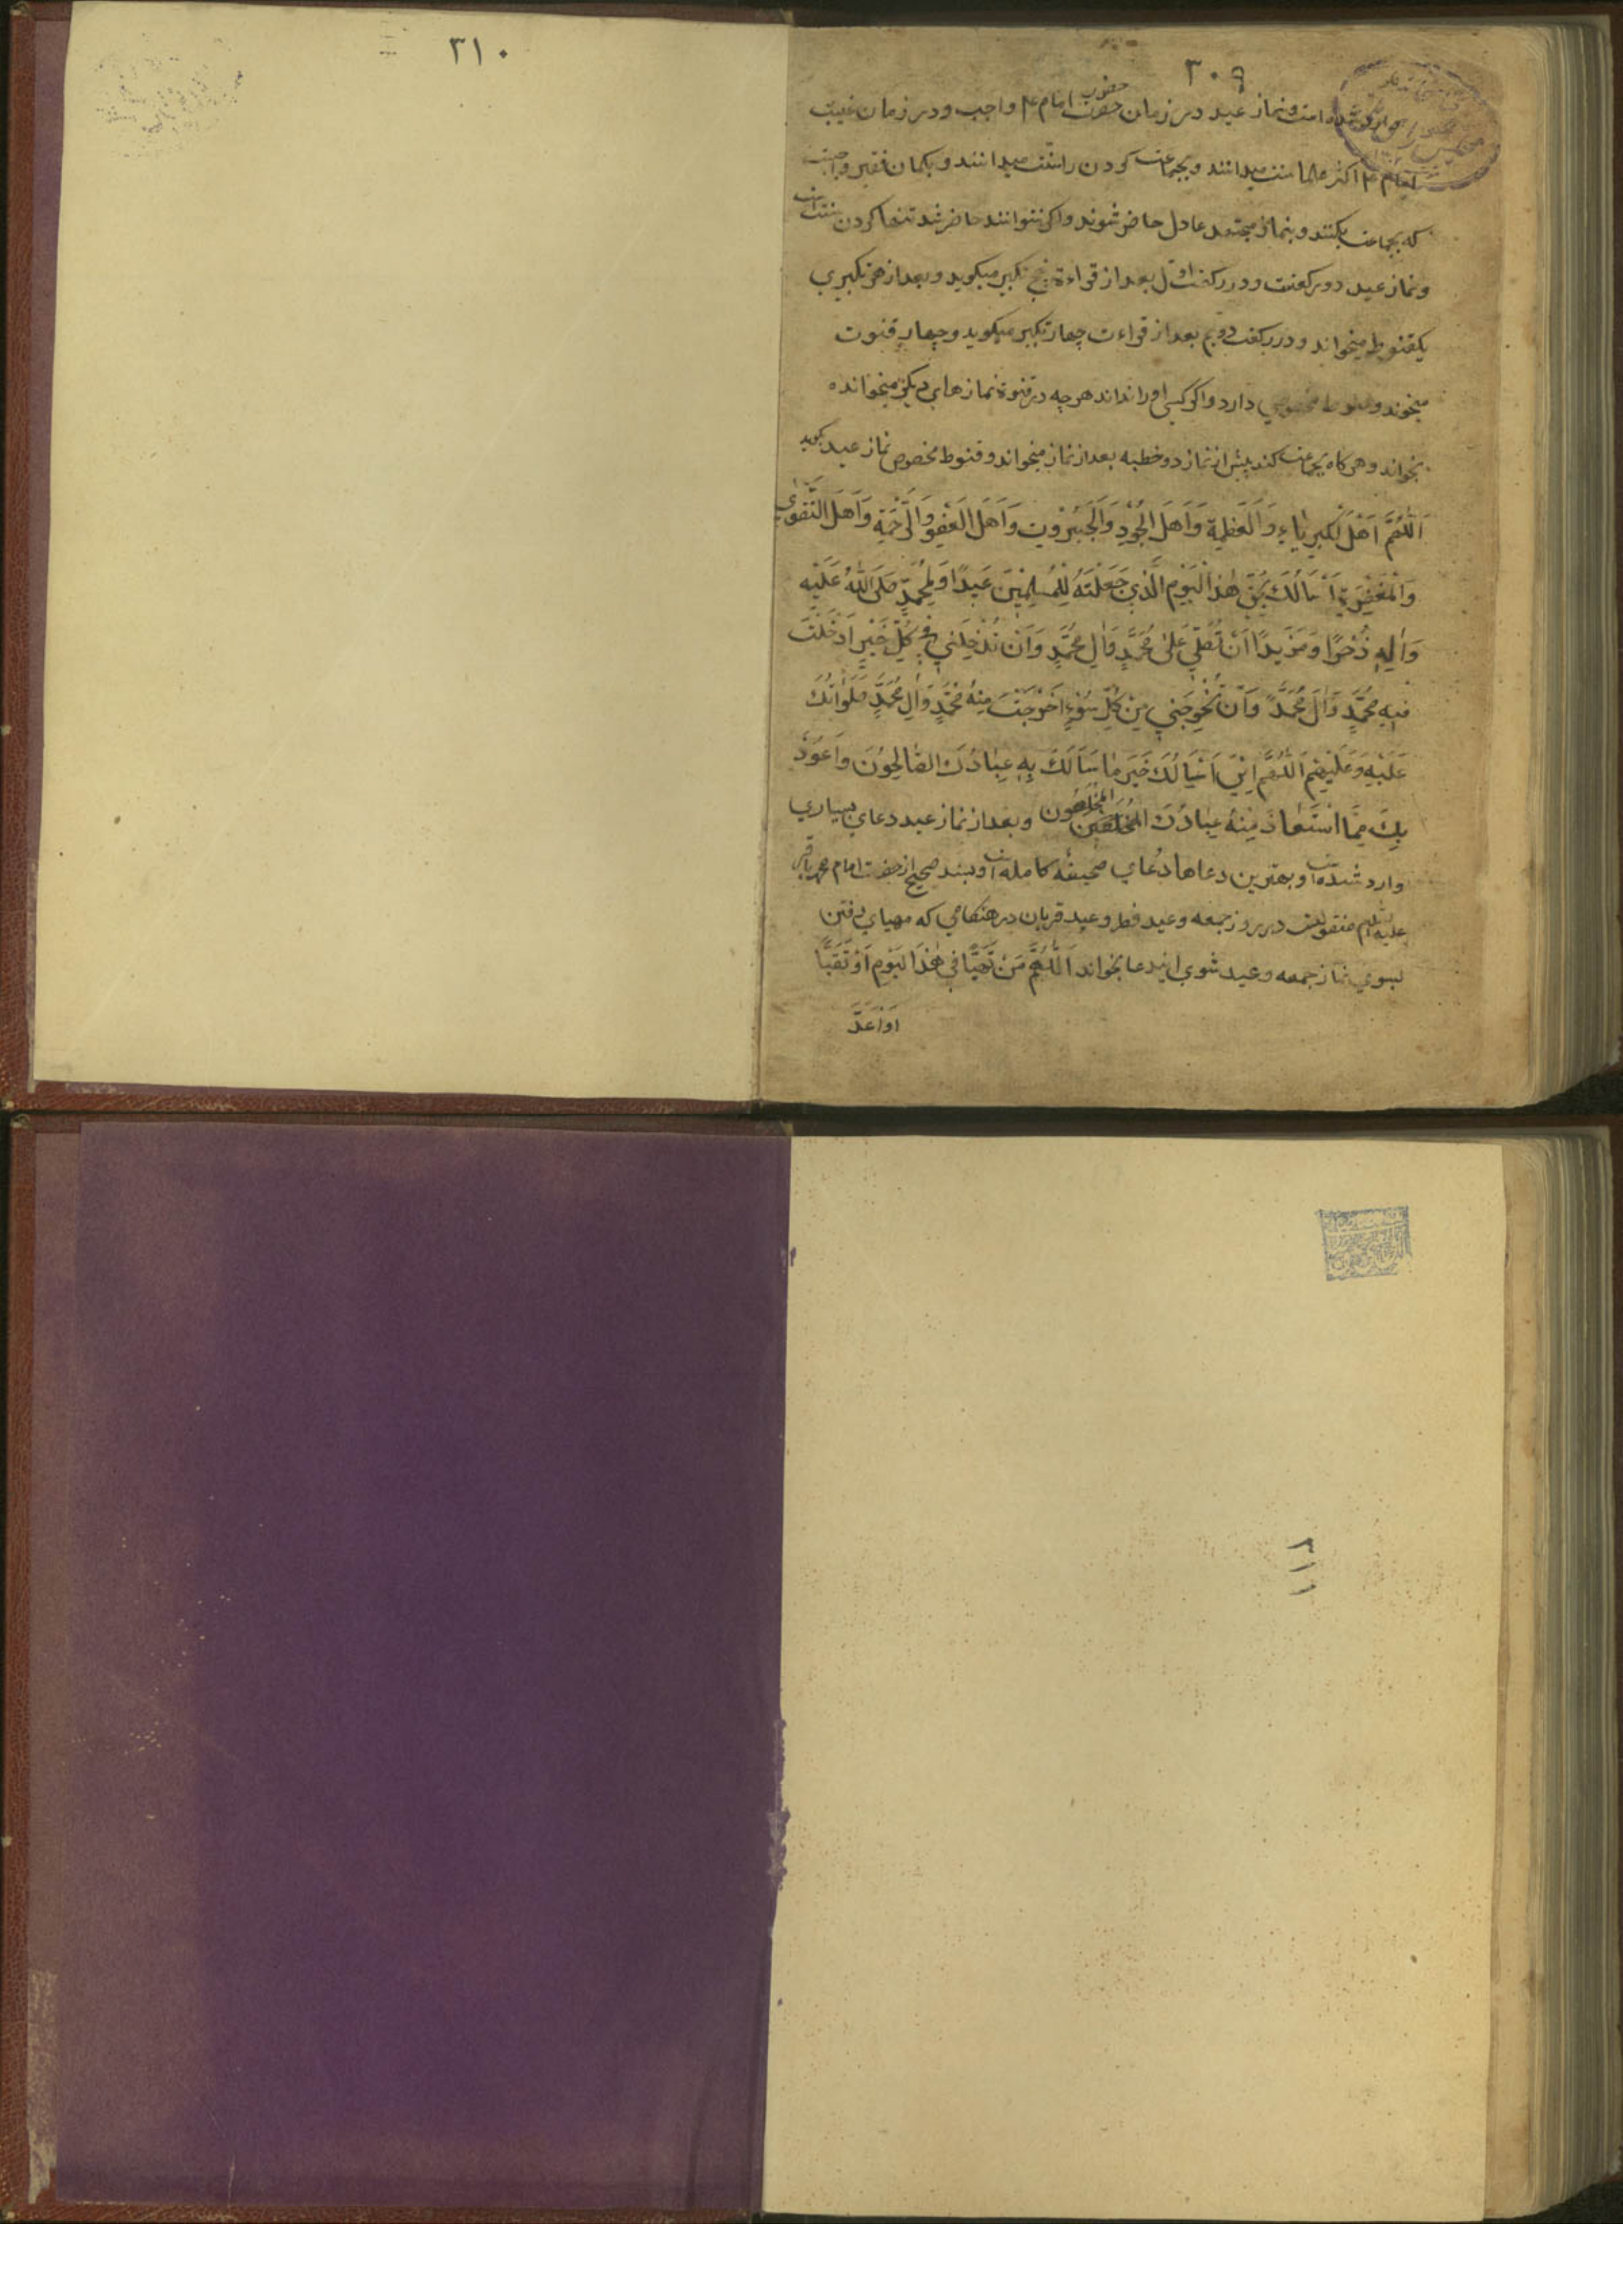 ۳۰۹
شده است و نماز عید در زمان حضور امام ع واجب و در زمان غیبت
امام ع اکثر علما سنت میدانند و بجماعت کردن را سنت میدانند و بکمان فقیر واجبست
که بجماعت بکنند و بنماز مجتهد عادل حاضر شوند و اکر نتوانند حاضر شد تنها کردن سنت است
و نماز عید دو رکعتست و در رکعت اول بعد از قراءة پنج تکبیر میکوید و بعد از هر تکبیری
یکقنوط میخواند و در رکعت دویم بعد از قراءت چهار تکبیر میکوید و چهار قنوت
میخوند و دارد و اکر کسی او را نداند هرچه در قنوة نمازهای دیکر میخوانده
بخواند و هر کاه بجماعت کند پیش از نماز دو خطبه بعد از نماز میخواند و قنوط مخصوص نماز عید
اَللّٰهُمَّ اَهْلَ الْکِبْرِیٰاءِ وَالْعَظَمَةِ وَاَهْلَ الْجُوْدِ وَالْجَبَرُوْتِ وَاَهْلَ الْعَفْوِ وَالرَّحْمَةِ وَاَهْلَ التَّقْوٰی
وَالْمَغْفِرَةِ اَسْاَلُكَ بِحَقِّ هٰذَا الْیَوْمِ الَّذِيْ جَعَلْتَهُ لِلْمُسْلِمِیْنَ عَیْدًا وَلِمُحَمَّدٍ صَلَّی اللّٰهُ عَلَیْهِ
وَاٰلِهٖ ذُخْرًا وَمَزِیْدًا اَنْ تُصَلِّيَ عَلٰی مُحَمَّدٍ وَاٰلِ مُحَمَّدٍ وَاَنْ تُدْخِلَنِيْ فِيْ کُلِّ خَیْرٍ اَدْخَلْتَ
فِیْهِ مُحَمَّدٍ وَاٰلَ مُحَمَّدٍ وَاَنْ تُخْرِجَنِيْ مِنْ کُلِّ سُوْءٍ اَخْرَجْتَ مِنْهُ مُحَمَّدٍ وَاٰلِ مُحَمَّدٍ صَلَوٰاتُكَ
عَلَیْهِ وَعَلَیْهِمْ اَللّٰهُمَّ اِنِّيْ اَسْاَلُكَ خَیْرَ مٰا سَاَلَكَ بِهٖ عِبٰادُكَ الصّٰالِحُوْنَ وَاَعُوْذُ
بِكَ مِمَّا اسْتَعٰاذَ مِنْهُ عِبٰادُكَ الْمُخْلَصُوْن و بعد از نماز عید دعای بسیاری
وارد شده است و بهترین دعاها دعای صحیفه کامله است و بسند صحیح از حضرت امام محمد باقر
علیه السلام منقولست در روز جمعه و عید فطر و عید قربان در هنکامی که مهیای رفتن
بسوی نماز جمعه و عید شوی ایندعا بخواند اَللّٰهُمَّ مَنْ تَهَیَّأَ فِيْ هٰذَا الْیَوْمِ اَوْ تَعَبَّأَ
اَوْ اَعَدَّ
۳۱۰
۳۱۱